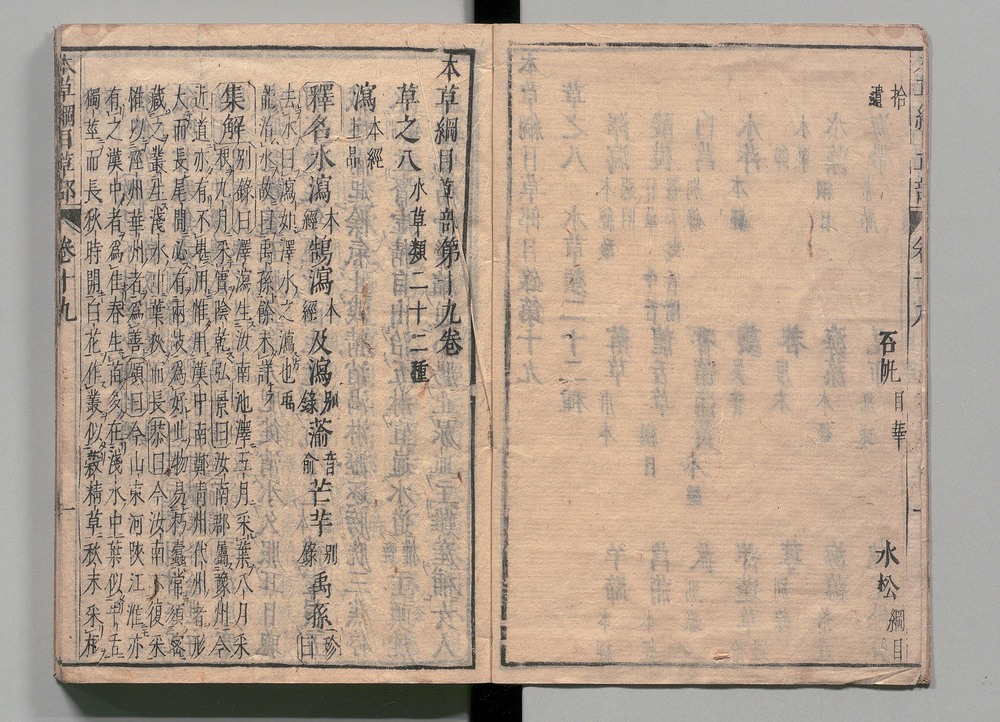 拾遺 石帆日華 水松綱目
本草綱目草部第十九卷
草之八 水草類二十二種
澤瀉本經上品
釋名水瀉本經鵠瀉本經及瀉別錄蕍音俞芒芋別錄禹孫珍曰
去水曰瀉如澤水之瀉也禹
能治水故曰禹孫餘未詳
集解別錄曰澤瀉生汝南池澤五月采葉八月采
根九月采實陰乾弘景曰汝南郡屬豫州今
近道亦有不堪用惟用漢中南鄭青州代州者形
大而長尾間必有兩歧爲好此物易朽蠹常須密
藏之叢生淺水中葉狹而長恭曰今汝南不復采
惟以涇州華州者爲善頌曰今山東河陝江淮亦
有之漢中者爲佳春生苗多在淺水中葉似牛舌
獨莖而長秋時開白花作叢似穀精草秋末采根
本草綱目草部 卷十九 一